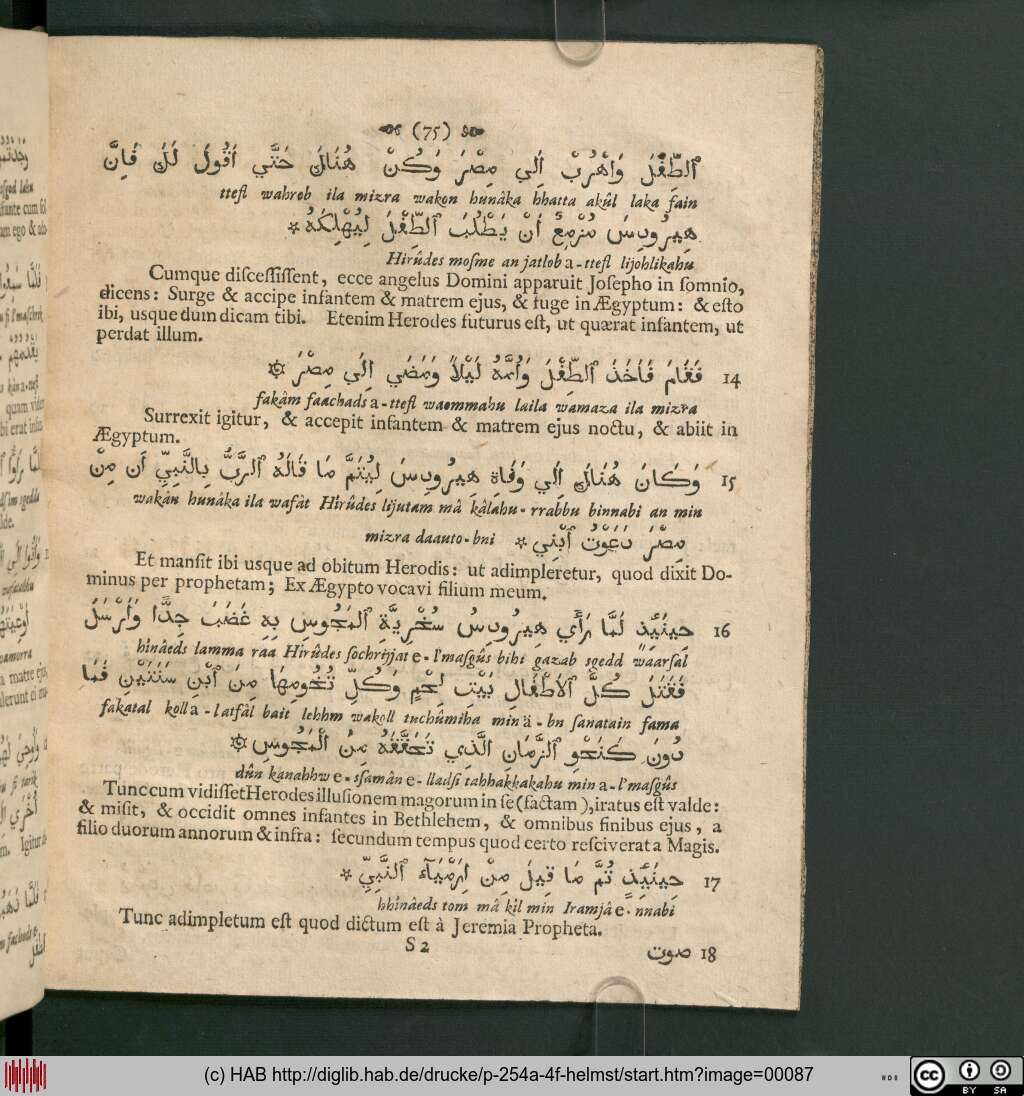 (75)
ٱلطِّفْلَ وَٱهْرُبْ إِلَي مِصْرَ وَكُنْ هُنَاكَ حَتَّي أَقُولَ لَكَ فَإِنَّ
ttefl wahrob ila mizra wakon hunâka hhatta akûl laka fain
هِيرُودِسَ مُزْمِعٌ أَنْ يَطْلُبَ ٱلطِّفْلَ لِيُهْلِكَهُ *
Hirûdes mosme an jatlob a-ttefl lijohlikahu
Cumque discessissent, ecce angelus Domini apparuit Josepho in somnio,
dicens: Surge & accipe infantem & matrem ejus, & fuge in Ægyptum: & esto
ibi, usque dum dicam tibi. Etenim Herodes futurus est, ut quærat infantem, ut
perdat illum.
14 فَقَامَ فَأَخَذَ ٱلطِّفْلَ وَأُمَّهُ لَيْلاً وَمَضَي إِلَي مِصْرَ
fakâm faachads a-ttefl waommahu laila wamaza ila mizra
Surrexit igitur, & accepit infantem & matrem ejus noctu, & abiit in
Ægyptum.
15 وَكَانَ هُنَاكَ إِلَي وَفَاةِ هِيرُودِسَ لِيُتَمَّ مَا قَالَهُ ٱلرَّبُّ بِالنَّبِيِّ أَن مِنْ
wakân hunâka ila wafât Hirûdes lijutam mâ kâlahu-rrabbu binnabi an min
مِصْرَ دَعَوْتُ ٱبْنِي *
mizra daauto-bni
Et mansit ibi usque ad obitum Herodis: ut adimpleretur, quod dixit Do-
minus per prophetam; Ex Ægypto vocavi filium meum.
16 حِينَيِذٍ لَمَّا رَأَي هِيرُودِسُ سُخْرِيَّةِ ٱلمَجُوسِ بِهِ غَضَبَ جِدًّا وَأَرْسَلَ
hînâeds lamma raa Hirûdes sochrijjat e-l'masgûs bihi gazab sgedd waarsal
فَقَتَلَ كُلَّ ٱلأَطْفَالِ بَيْتِ لَحْمٍ وَكُلِّ تُخُومِهَا مِنَ ٱبْنِ سَنَتَيْنِ فَمَا
fakatal kolla-latfâl bait lehhm wakoll tuchûmiha min a-bn sanatain fama
دُونَ كَنَحْوِ ٱلزَّمَانِ الَّذِي تَحَقَّقَهُ مِنُ ٱلْمَجُوسِ
dûn kanahhw e-ssamân e-lladsi tahhakkakahu min a-l'masgûs
Tunc cum vidisset Herodes illusionem magorum in se (factam), iratus est valde:
& misit, & occidit omnes infantes in Bethlehem, & omnibus finibus ejus, a
filio duorum annorum & infra: secundum tempus quod certo resciverat a Magis.
17 حِينَيِذٍ تُمَّ مَا قِيلَ مِنْ إِرَمْيَآءَ ٱلنَّبِيِّ *
hhinâeds tom mâ kil min Iramjâ e-nnabi
Tunc adimpletum est quod dictum est à Jeremia Propheta.
S 2
18 صوت
(c) HAB http://diglib.hab.de/drucke/p-254a-4f-helmst/start.htm?image=00087
cc BY SA